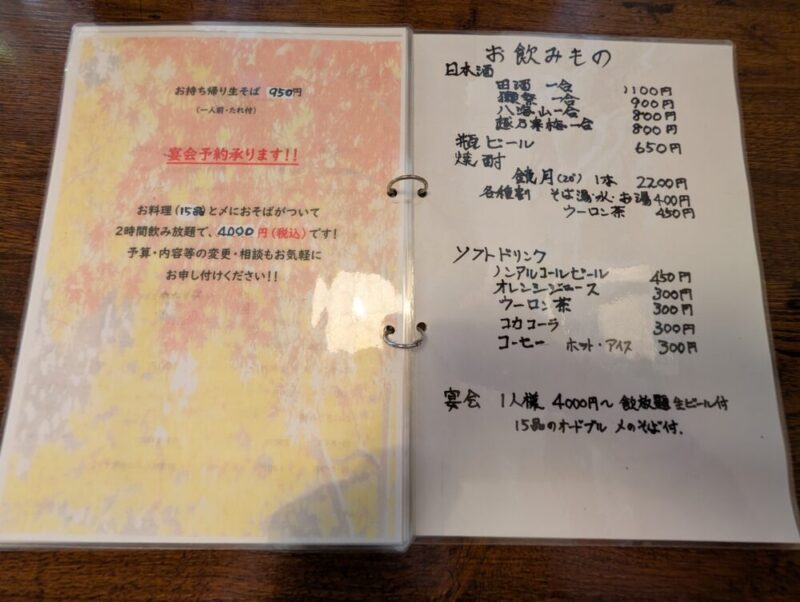 お持ち帰り生そば 950円
(一人前・たれ付)
宴会予約承ります!!
お料理(15品)と〆におそばがついて
2時間飲み放題で、4000円(税込)です!
予算・内容等の変更・相談もお気軽に
お申し付けください!!
お飲みもの
日本酒
田酒 一合 1100円
獺祭 一合 900円
八海山一合 800円
越乃寒梅一合 800円
瓶ビール 650円
焼酎
鏡月(20°) 1本 2200円
各種割 そば湯・水・お湯 400円
ウーロン茶 450円
ソフトドリンク
ノンアルコールビール 450円
オレンジジュース 300円
ウーロン茶 300円
コカコーラ 300円
コーヒー ホット・アイス 300円
宴会 1人様 4000円〜 飲放題 生ビール付
15品のオードブル 〆のそば付.